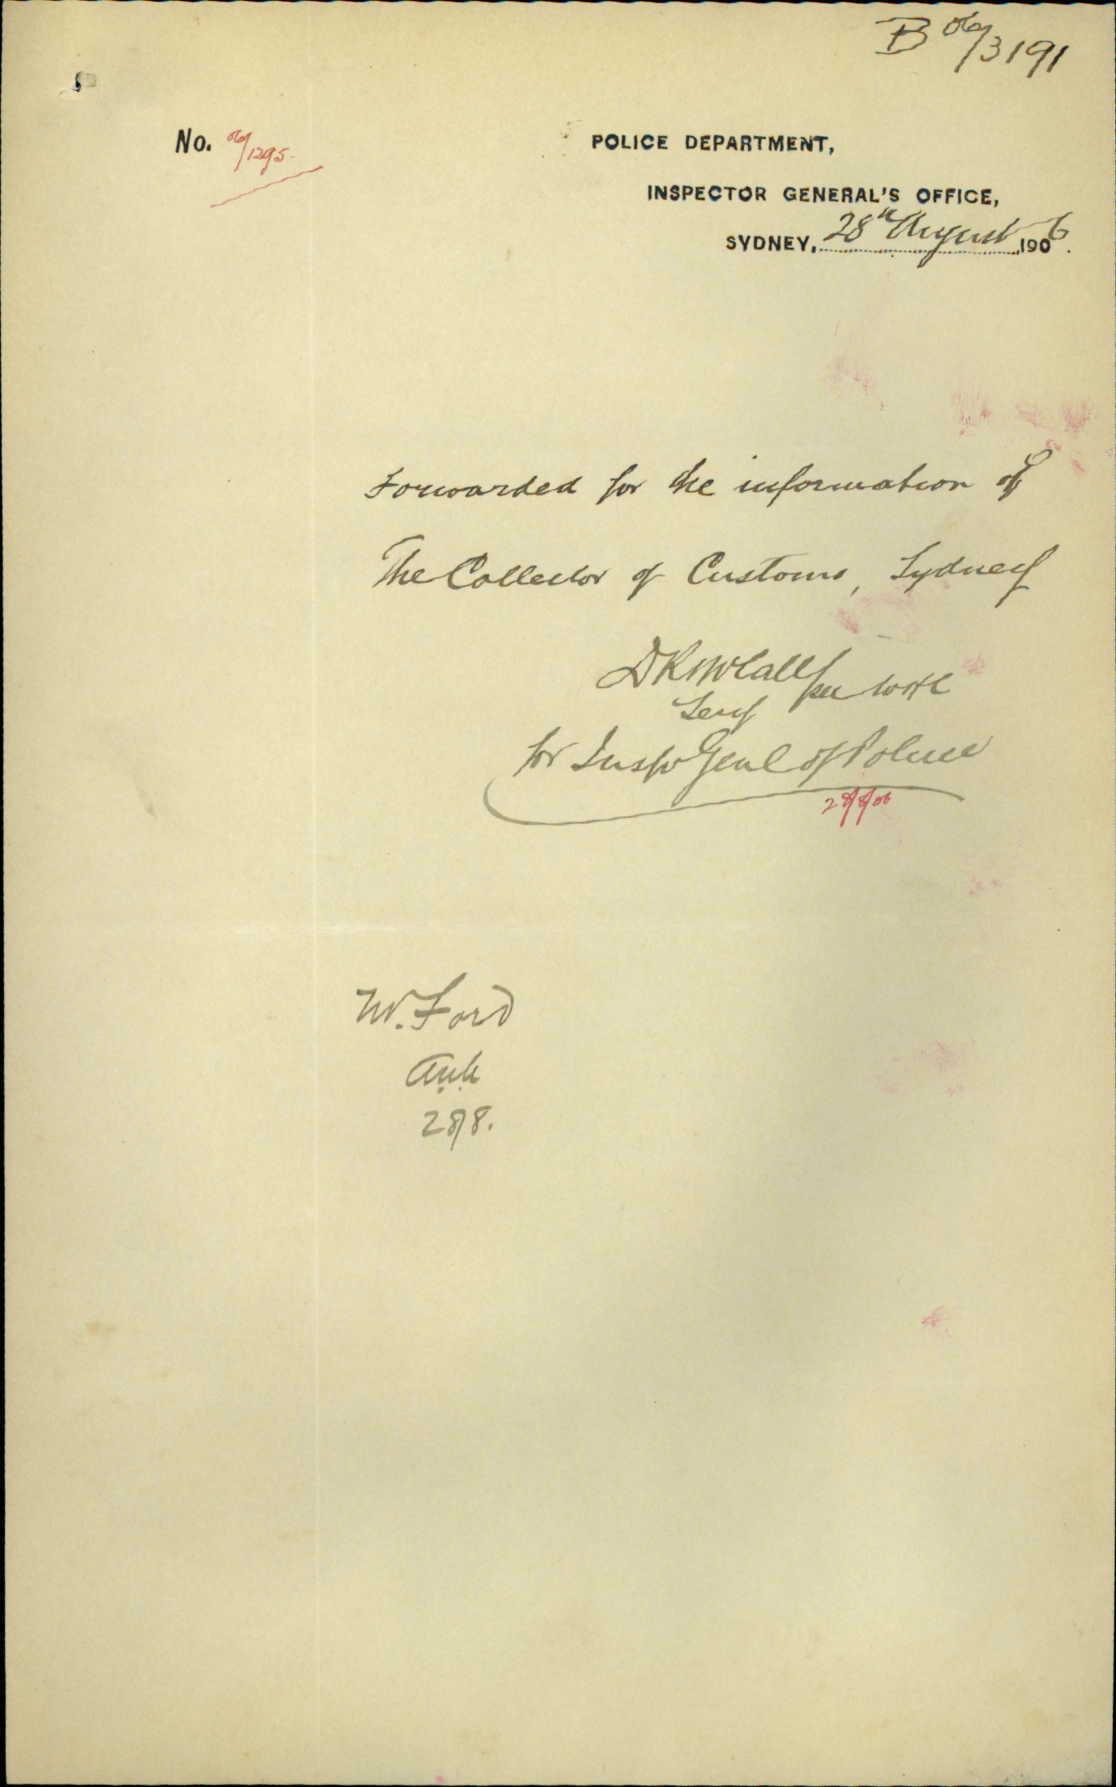 B 06/3191
No. 06/1295.
POLICE DEPARTMENT,
INSPECTOR GENERAL'S OFFICE,
SYDNEY, 28th August 1906.
Forwarded for the information of
The Collector of Customs, Sydney
for Inspr Genl of Police
28/8/06
W. Ford
28/8.